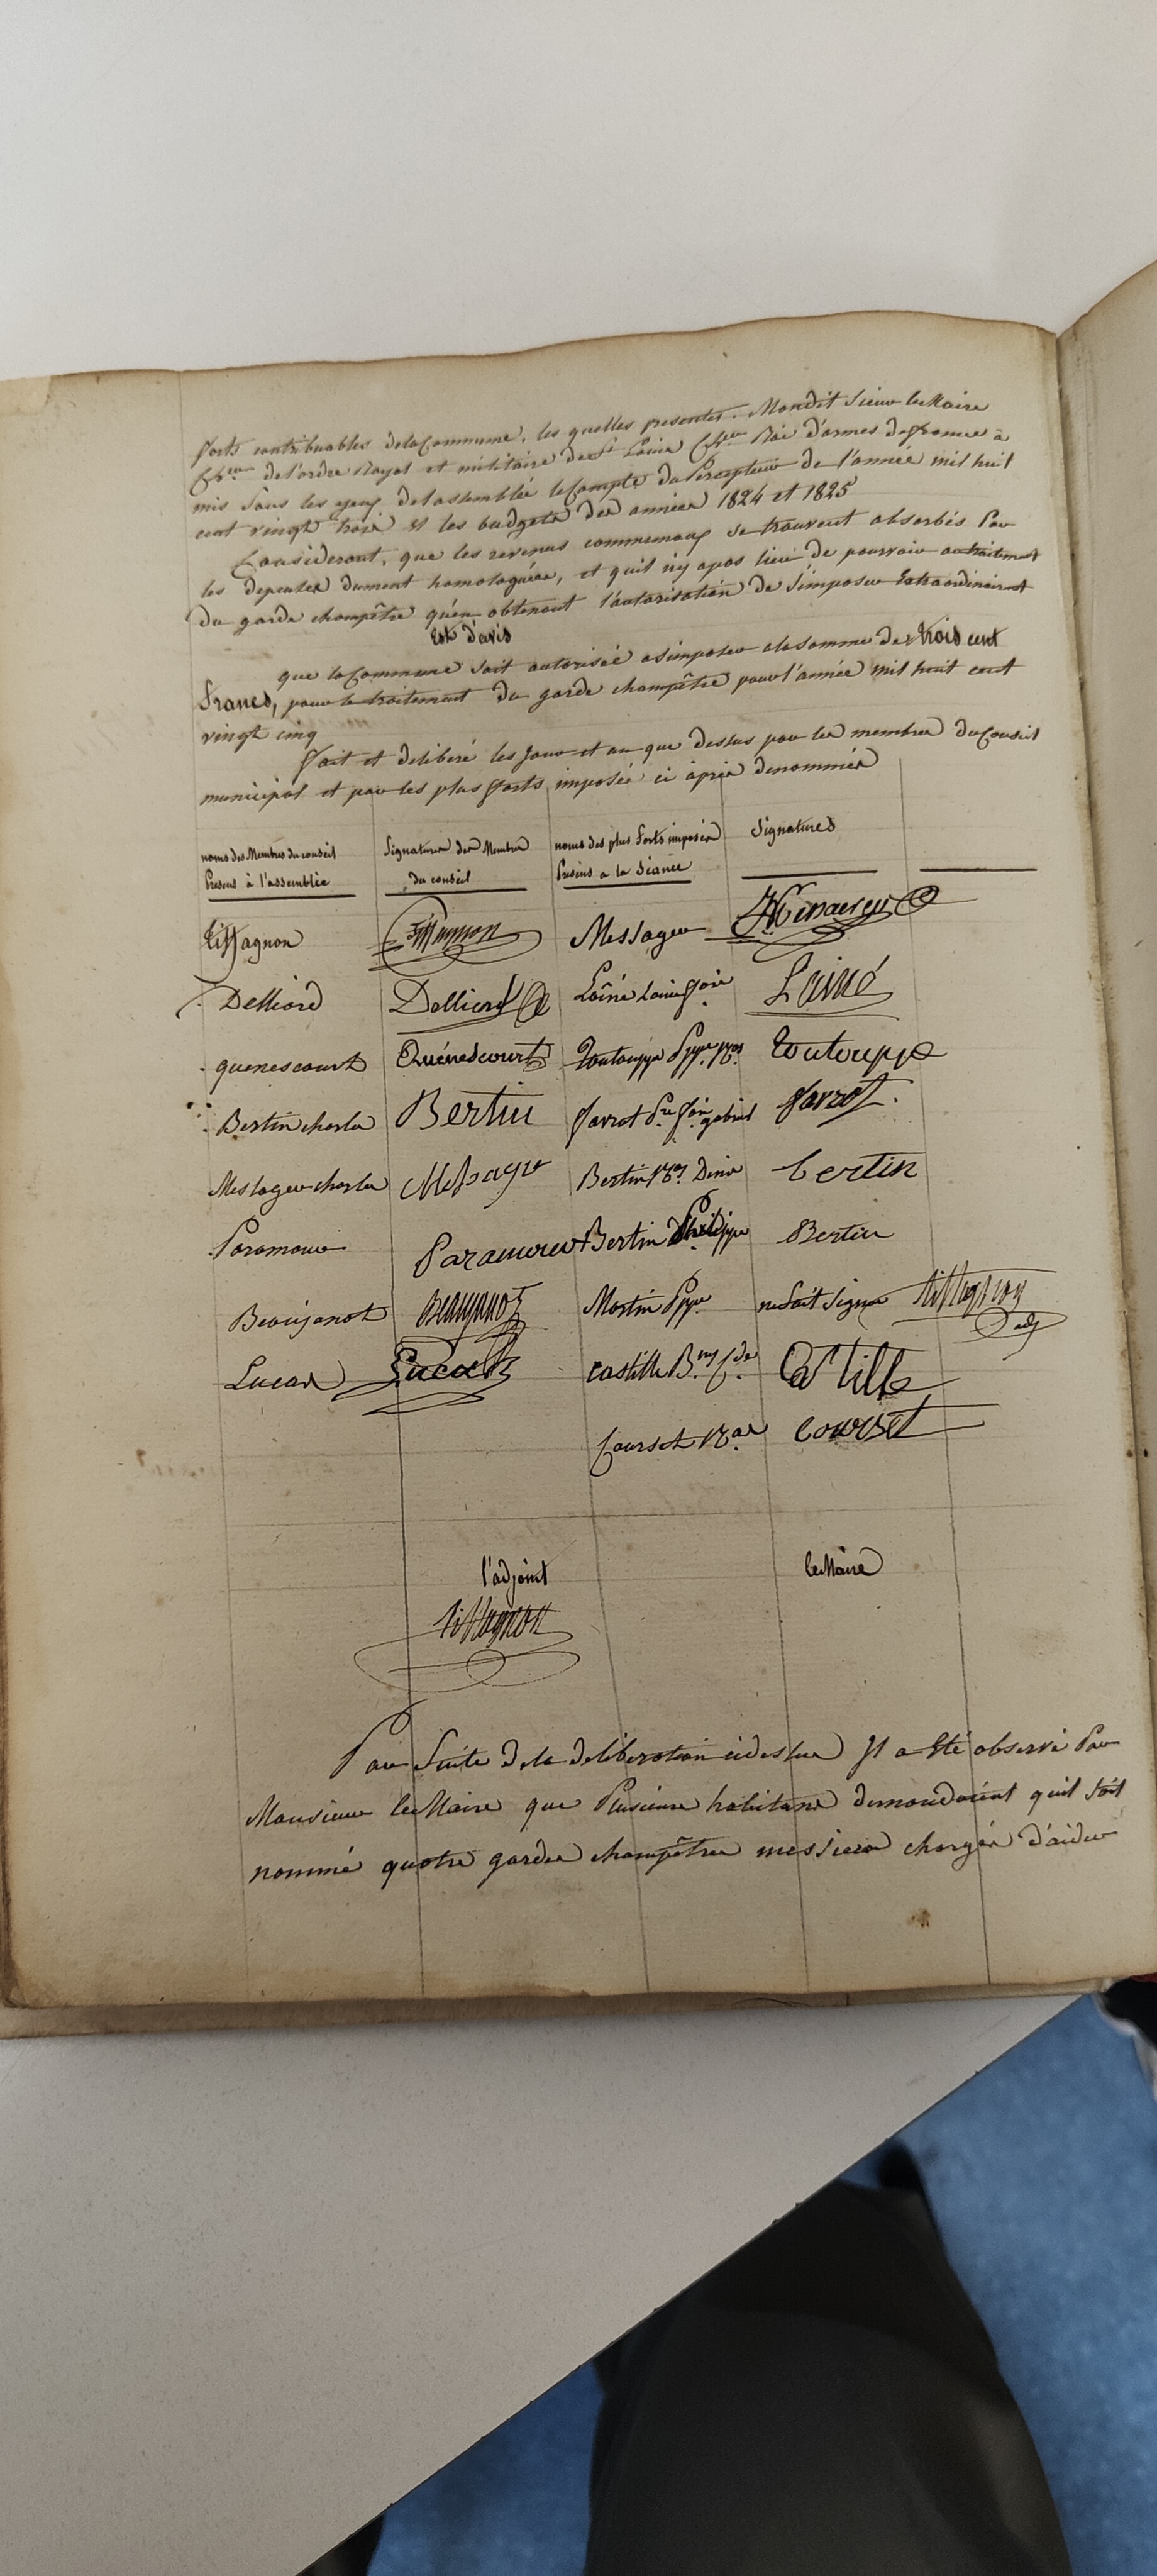 forts contribuables delaCommune, les quelles presentes. Mondit Sieur leMaire
Ch.er de l'ordre Royal et militaire de St Louis Roi d'armes defrance à
mis sous les yeux del'assemblée leCompte duPercepteur de l'année mil huit
cent vingt trois et les budgets des années 1824 et 1825
Considerant, que les revenus communaux se trouvent absorbés Par
les depenses dument homologuées, et quil n'y apas lieu de pourvoir autraitement
du garde champêtre qu'en obtenant l'autorisation de s'imposer Extraordinairement
Est d'avis
que laCommune soit autorisée asimposer alasomme de trois cent
francs, pour le traitement du garde champêtre pour l'année mil huit cent
vingt cinq
fait et deliberé les jour et an que dessus par les membres duConseil
municipal et par les plus forts imposés ci après denommés
noms des Membres du conseil Signatures des Membres noms des plus forts imposés Signatures
Presens à l'assemblée du conseil Presens a la Séance
tiffagnon Messager
Delliard Delliard Lainé Louis Lainé
quenescourt Quénescourt Toutouppe Toutouppe
Bertin charles Bertin Javrot gabriel Javrot.
Messager charles Messager Bertin Denis Bertin
Paramour Paramour Bertin Philippe Bertin
Beaujanot Beaujanot Martin Ppe ne sait signer tiffagnon adj
Lucas Lucas Castille Castille
Courset Courset
l'adjoint leMaire
tiffagnon
Par Suite de la deliberation cidessus Il a Eté observé Par
Monsieur leMaire que Plusieurs habitans demandoient quil soit
nommé quatre gardes champêtres messiers chargés d'aider